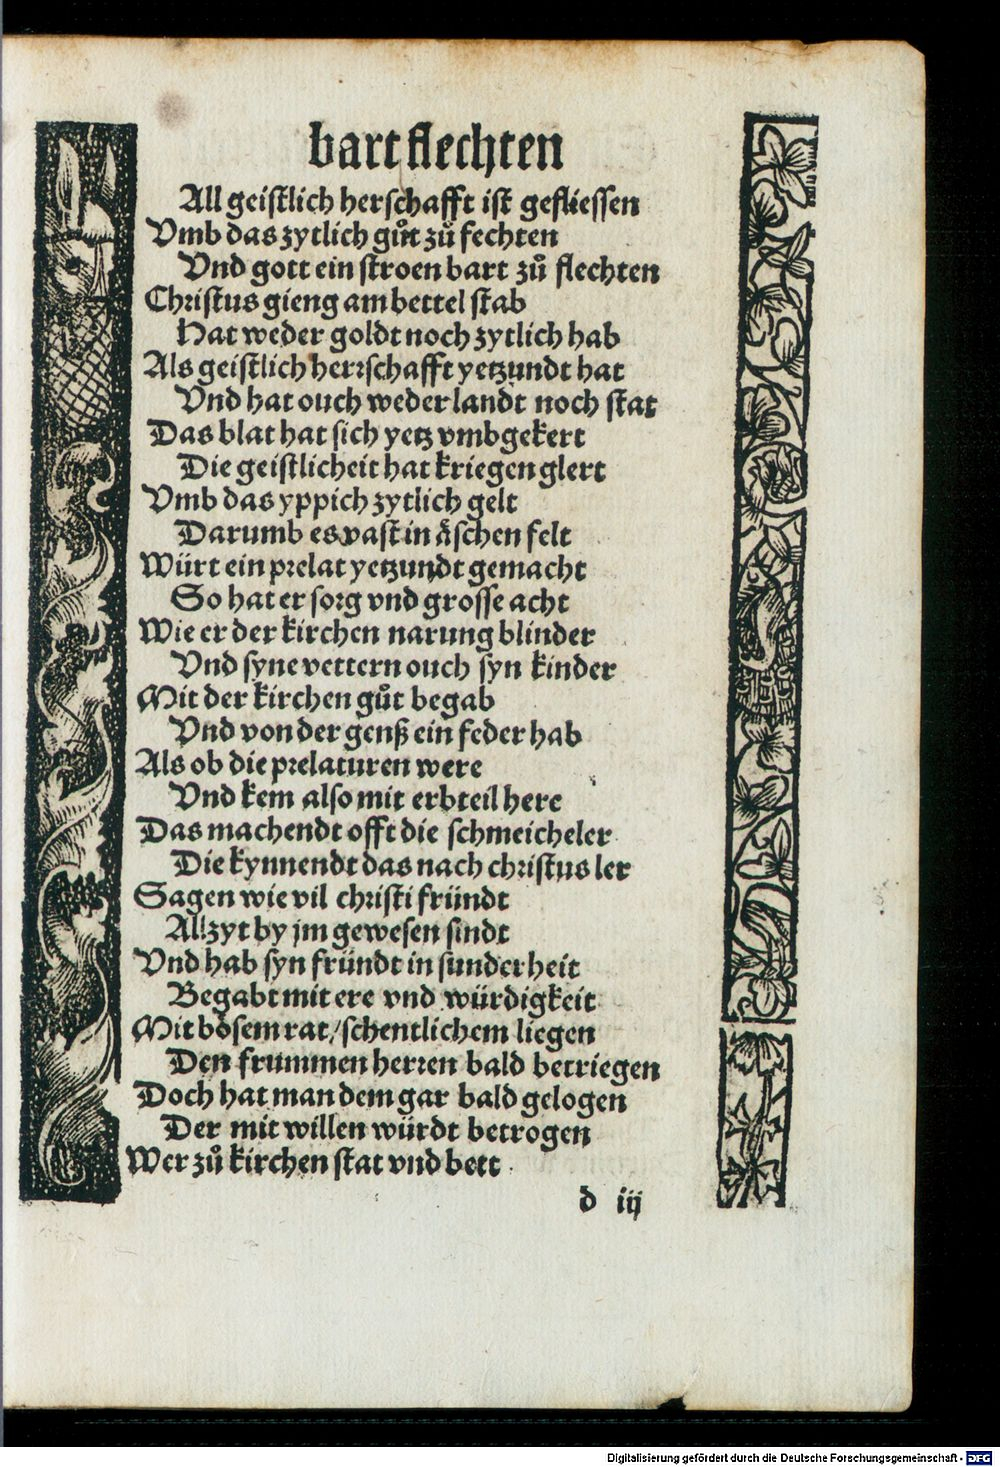 bart flechten
All geistlich herschafft ist gefliessen
Vmb das zytlich gůt zů fechten
Vnd gott ein stroen bart zů flechten
Christus gieng am bettel stab
Hat weder goldt noch zytlich hab
Als geistlich herrschafft yetzundt hat
Vnd hat ouch weder landt noch stat
Das blat hat sich yetz vmbgekert
Die geistlicheit hat kriegen glert
Vmb das yppich zytlich gelt
Darumb es vast in äschen felt
Würt ein prelat yetzundt gemacht
So hat er sorg vnd grosse acht
Wie er der kirchen narung blinder
Vnd syne vettern ouch syn kinder
Mit der kirchen gůt begab
Vnd von der genß ein feder hab
Als ob die prelaturen were
Vnd kem also mit erbteil here
Das machendt offt die schmeicheler
Die kynnendt das nach christus ler
Sagen wie vil christi fründt
Allzyt by jm gewesen sindt
Vnd hab syn fründt in sunderheit
Begabt mit ere vnd würdigkeit
Mit bösem rat / schentlichem liegen
Den frummen herren bald betriegen
Doch hat man dem gar bald gelogen
Der mit willen würdt betrogen
Wer zů kirchen stat vnd bett
d iij
Digitalisierung gefördert durch die Deutsche Forschungsgemeinschaft - DFG